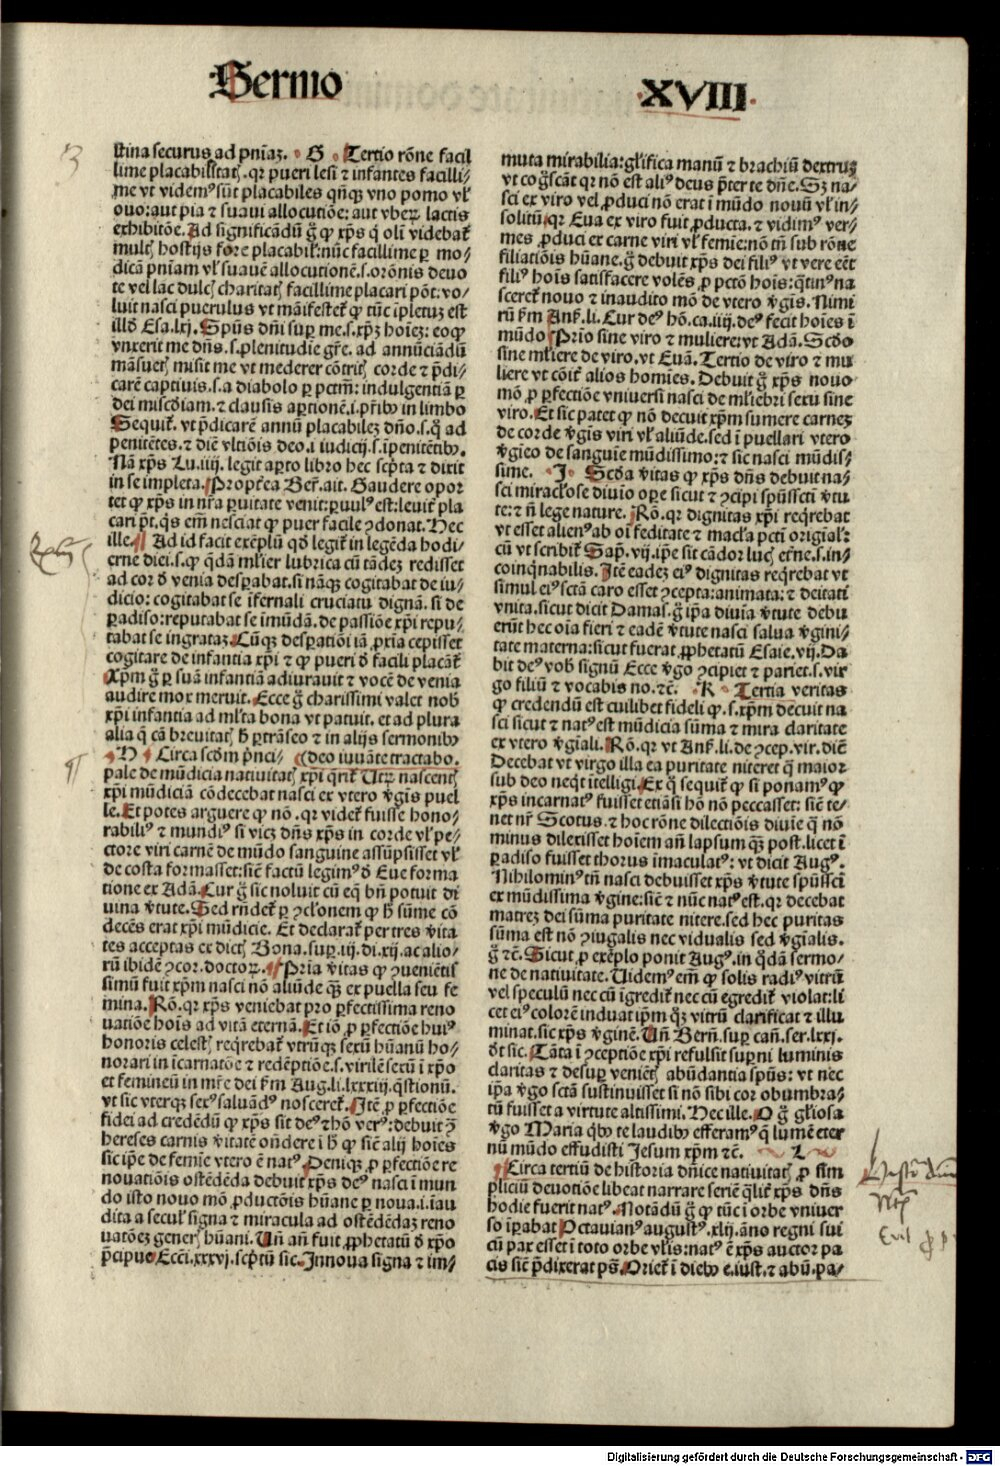 Sermo XVIII
stina securus ad pnīaʒ. G Tertio rōne facil
lime placabilitatꝭ. qꝛ pueri lesi ⁊ infantes facilli-
me vt videmꝰ sūt placabiles qn̄qꝫ vno pomo vl̓
ouo: aut pia ⁊ suaui allocutiōe: aut vbeꝝ lactis
exhibitōe. Ad significādū g̊ ꝙ xp̄s q̇ olī videbat̄
multꝭ hostijs fore placabil̓: nūc facillime ꝑ mo/
dicā pnīam vl̓ suauē allocutionē. s. orōnis deuo
te vel lac dulcꝭ charitatꝭ facillime placari pōt: vo/
luit nasci puerulus vt māifestet̄ ꝙ tūc īpletuʒ est
illḋ Esa. lxj. Spūs dn̄i suꝑ me. s. xp̄ʒ hoīeʒ: eo ꝙ
vnxerit me dn̄s. s. plenitudīe gr̄e. ad annūciādū
māsuetꝭ misit me vt mederer cōtritꝭ corde ⁊ p̄di/
carē captiuis. s. a diabolo ꝑ pctm̄: indulgentiā ꝑ
dei miscḋiam. ⁊ clausis aꝑtionē. i. pr̄ibꝰ in limbo
Sequit̄. vt p̄dicarē annū placabileʒ dn̄o. s. q̇ ad
penitētes. ⁊ diē vltiōis deo. i. iudicij. s. īpenitētibꝰ.
Nā xp̄s Lu. iiij. legit aꝑto libro hec scp̄ta ⁊ dixit
in se impleta. Propt̓ea Ber̄. ait. Gaudere opor
tet ꝙ xp̄s in nr̄a ꝑuitate venit: ꝑuulꝰ est: leuit̓ pla
cari pōt. q̇s em̄ nesciat ꝙ puer facile ꝯdonat. Hec
ille. Ad id facit exēplū qḋ legit̄ in legēda hodi/
erne diei. s. ꝙ q̇dā ml̓ier lubrica cū tādeʒ redisset
ad cor ḋ venia desꝑabat. si nāqꝫ cogitabat de iu/
dicio: cogitabat se īfernali cruciatu dignā. si de
ꝑadiso: reputabat se imūdā. de passiōe xp̄i repu/
tabat se ingrataʒ. Cūqꝫ desꝑatiōi iā ꝓxīa cepisset
cogitare de infantia xp̄i ⁊ ꝙ pueri ḋ facili placāt̄
xp̄m g̊ ꝑ suā infantiā adiurauit ⁊ vocē de venia
audire mox meruit. Ecce g̊ charissimi valet nob̄
xp̄i infantia ad ml̓ta bona vt patuit. et ad plura
alia q̄ cā breuitatꝭ h̄ ꝑtrāseo ⁊ in alijs sermonibꝰ
H Circa scḋm p̄nci- (deo iuuāte tractabo.
pale de mūdicia natiuitatꝭ xp̄i q̄rit̄ Utꝝ nascentꝭ
xp̄i mūdiciā cōdecebat nasci ex vtero v̓gīs puel
le. Et potes arguere ꝙ nō. qꝛ videt̄ fuisse hono/
rabiliꝰ ⁊ mundiꝰ si viceʒ dn̄s xp̄s in corde vl̓ pe/
ctore viri carnē de mūdo sanguine assūpsisset vl̓
de costa formasset: sic̄ factū legimꝰ ḋ Eue forma
tione ex Adā. Cur g̊ sic noluit cū eq̄ bn̄ potuit di
uina v̓tute. Sed rn̄det̄ ꝑ ꝯcl̓onem ꝙ h̄ sūme cō
decēs erat xp̄i mūdicie. Et declarat̄ per tres v̓ita
tes acceptas ex dictꝭ Bona. suꝑ. iij. di. xij. ac alio/
rū ibidē ꝯcor. doctoꝝ. Pri̓a v̓itas ꝙ ꝯueniētis
simū fuit xp̄m nasci nō aliūde qꝫ ex puella seu fe
mina. Rō. qꝛ xp̄s veniebat pro ꝑfectissima reno
uatiōe hoīs ad vitā eternā. Et iō ꝓ ꝑfectiōe huiꝰ
honoris celestꝭ req̄rebat̄ vtrūqꝫ sexū hūanū ho/
norari in īcarnatōe ⁊ redēptiōe. s. virilē sexū ī xp̄o
et femineū in mr̄e dei fm̄ Aug. li. lxxxiij. q̄stionū.
vt sic vterqꝫ sexꝰ saluādꝰ nosceret̄. Itē ꝓ ꝑfectiōe
fidei ad credēdū ꝙ xp̄s sit deꝰ ⁊ hō verꝰ: debuit ꝯ̄
hereses carnis v̓itatē on̄dere ī h̄ ꝙ sic̄ alij hoīes
sic ip̄e de femīe vtero ē natꝰ. Deniqꝫ ꝓ ꝑfectiōe re
nouatiōis ostēdēda debuit xp̄s deꝰ nasci ī mun
do isto nouo mō ꝓductōis hūane ꝑ noua. i. iau
dita a secul̓ signa ⁊ miracula ad ostēdēdaʒ reno
uatōeʒ generꝭ hūani. Un̄ an̄ fuit ꝓphetatū ḋ xp̄o
p̄cipue Ecci. xxxvj. scp̄tū sic. Innoua signa ⁊ im/
muta mirabilia: gl̓ifica manū ⁊ brachiū dextruʒ
vt cog̊scāt qꝛ nō est aliꝰ deus p̄ter te dn̄e. Sʒ na/
sci ex viro vel ꝓduci nō erat ī mūdo nouū vl̓ in/
solitū. qꝛ Eua ex viro fuit ꝓducta. ⁊ vidimꝰ ver/
mes ꝓduci ex carne viri vl̓ femīe: nō tn̄ sub rōne
filiatiōis hūane. g̊ debuit xp̄s dei filiꝰ vt vere eēt
filiꝰ hoīs satisfacere volēs ꝓ pctō hoīs: q̄tinꝰ na
sceret̄ nouo ⁊ inaudito mō de vtero v̓gīs. Nimi
rū fm̄ Ans̄. li. Cur deꝰ hō. ca. iiij. deꝰ fecit hoīes ī
mūdo Prio sine viro ⁊ muliere: vt Adā. Scḋo
sine ml̓iere de viro. vt Euā. Tertio de viro ⁊ mu
liere vt cōit̓ alios homīes. Debuit g̊ xp̄s nouo
mō ꝓ ꝑfectiōe vniuersi nasci de ml̓iebri sexu sine
viro. Et sic patet ꝙ nō decuit xp̄m sumere carneʒ
de corde v̓gīs viri vl̓ aliūde. sed ī puellari vtero
v̓gīeo de sanguīe mūdissimo: ⁊ sic nasci mūdis/
sime. I Scḋa v̓itas ꝙ xp̄s dn̄s debuit na/
sci miracl̓ose diuīo oꝑe sicut ⁊ ꝯcipi spūsscti v̓tu
te: ⁊ n̄ lege nature. Rō. qꝛ dignitas xp̄i req̄rebat
vt esset alienꝰ ab oī feditate ⁊ macl̓a pcti origial̓:
cū vt scribit̄ Sap̄. vij. ip̄e sit cādor lucꝭ et̓ne. s. in/
coinq̇nabilis. Itē eadeʒ eiꝰ dignitas req̄rebat vt
simul eiꝰ sctā caro esset ꝯcepta: animata: ⁊ deitati
vnita. sicut dicit Damas. g̊ ip̄a diuīa v̓tute debu
erūt hec oīa fieri ⁊ eadē v̓tute nasci salua v̓gini/
tate materna: sicut fuerat ꝓphetatū Esaie. vij. Da
bit deꝰ vob̄ signū Ecce v̓go ꝯcipiet ⁊ pariet. s. vir
go filiū ⁊ vocabis no. ⁊c̄. K Tertia veritas
ꝙ credendū est cuilibet fideli ꝙ. s. xp̄m decuit na/
sci sicut ⁊ natꝰ est mūdicia sūma ⁊ mira claritate
ex vtero v̓gīali. Rō. qꝛ vt Ans̄. li. de ꝯcep. vir. dic̄
Decebat vt virgo illa ea puritate niteret q̄ maior
sub deo neq̇t ītelligi. Ex q̊ sequit̄ ꝙ si ponamꝰ ꝙ
xp̄s incarnatꝰ fuisset etiāsi hō nō peccasset: sic̄ te/
net nr̄ Scotus. ⁊ hoc rōne dilectiōis diuīe q̄ nō
minus dilexisset hoīem an̄ lapsum qꝫ post. licet ī
ꝑadiso fuisset thorus īmaculatꝰ: vt dicit Augꝰ.
Nihilominꝰ tn̄ nasci debuisset xp̄s v̓tute spūsscī
ex mūdissima v̓gine: sic̄ ⁊ nūc natꝰ est. qꝛ decebat
matreʒ dei sūma puritate nitere. sed hec puritas
sūma est nō ꝯiugalis nec vidualis sed v̓gīalis.
g̊ ⁊c̄. Sicut ꝓ exēplo ponit Augꝰ. in q̇dā sermo/
ne de natiuitate. Uidemꝰ em̄ ꝙ solis radiꝰ vitrū
vel speculū nec cū īgredit̄ nec cū egredit̄ violat: li
cet eiꝰ colorē induat ip̄m qꝫ vitrū clarificat ⁊ illu
minat. sic xp̄s v̓ginē. Un̄ Bern̄. suꝑ can̄. ser. lxxj.
ḋt sic. Tāta ī ꝯceptiōe xp̄i refulsit suꝑni luminis
claritas ⁊ desuꝑ veniētꝭ abūdantia spūs: vt nec
ip̄a v̓go sctā sustinuisset si nō sibi cor obumbra/
tū fuisset a virtute altissimi. Hec ille. O g̊ gl̓iosa
v̓go Maria q̇bꝰ te laudibꝰ efferamꝰ q̄ lumē eter
nū mūdo effudisti Jesum xp̄m ⁊c̄. L
Circa tertiū de historia dn̄ice natiuitatꝭ ꝓ sim
pliciū deuotiōe libeat narrare seriē q̄lit̓ xp̄s dn̄s
hodie fuerit natꝰ. Notādū g̊ ꝙ tūc ī orbe vniuer
so īꝑabat Octauianꝰ augustꝰ. xlij. āno regni sui
cū pax esset ī toto orbe vl̓is: natꝰ ē xp̄s auctor pa
cis sic̄ p̄dixerat ps̄. Oriet̄ ī diebꝰ e. iust. ⁊ abū. pa/
Digitalisierung gefördert durch die Deutsche Forschungsgemeinschaft - DFG